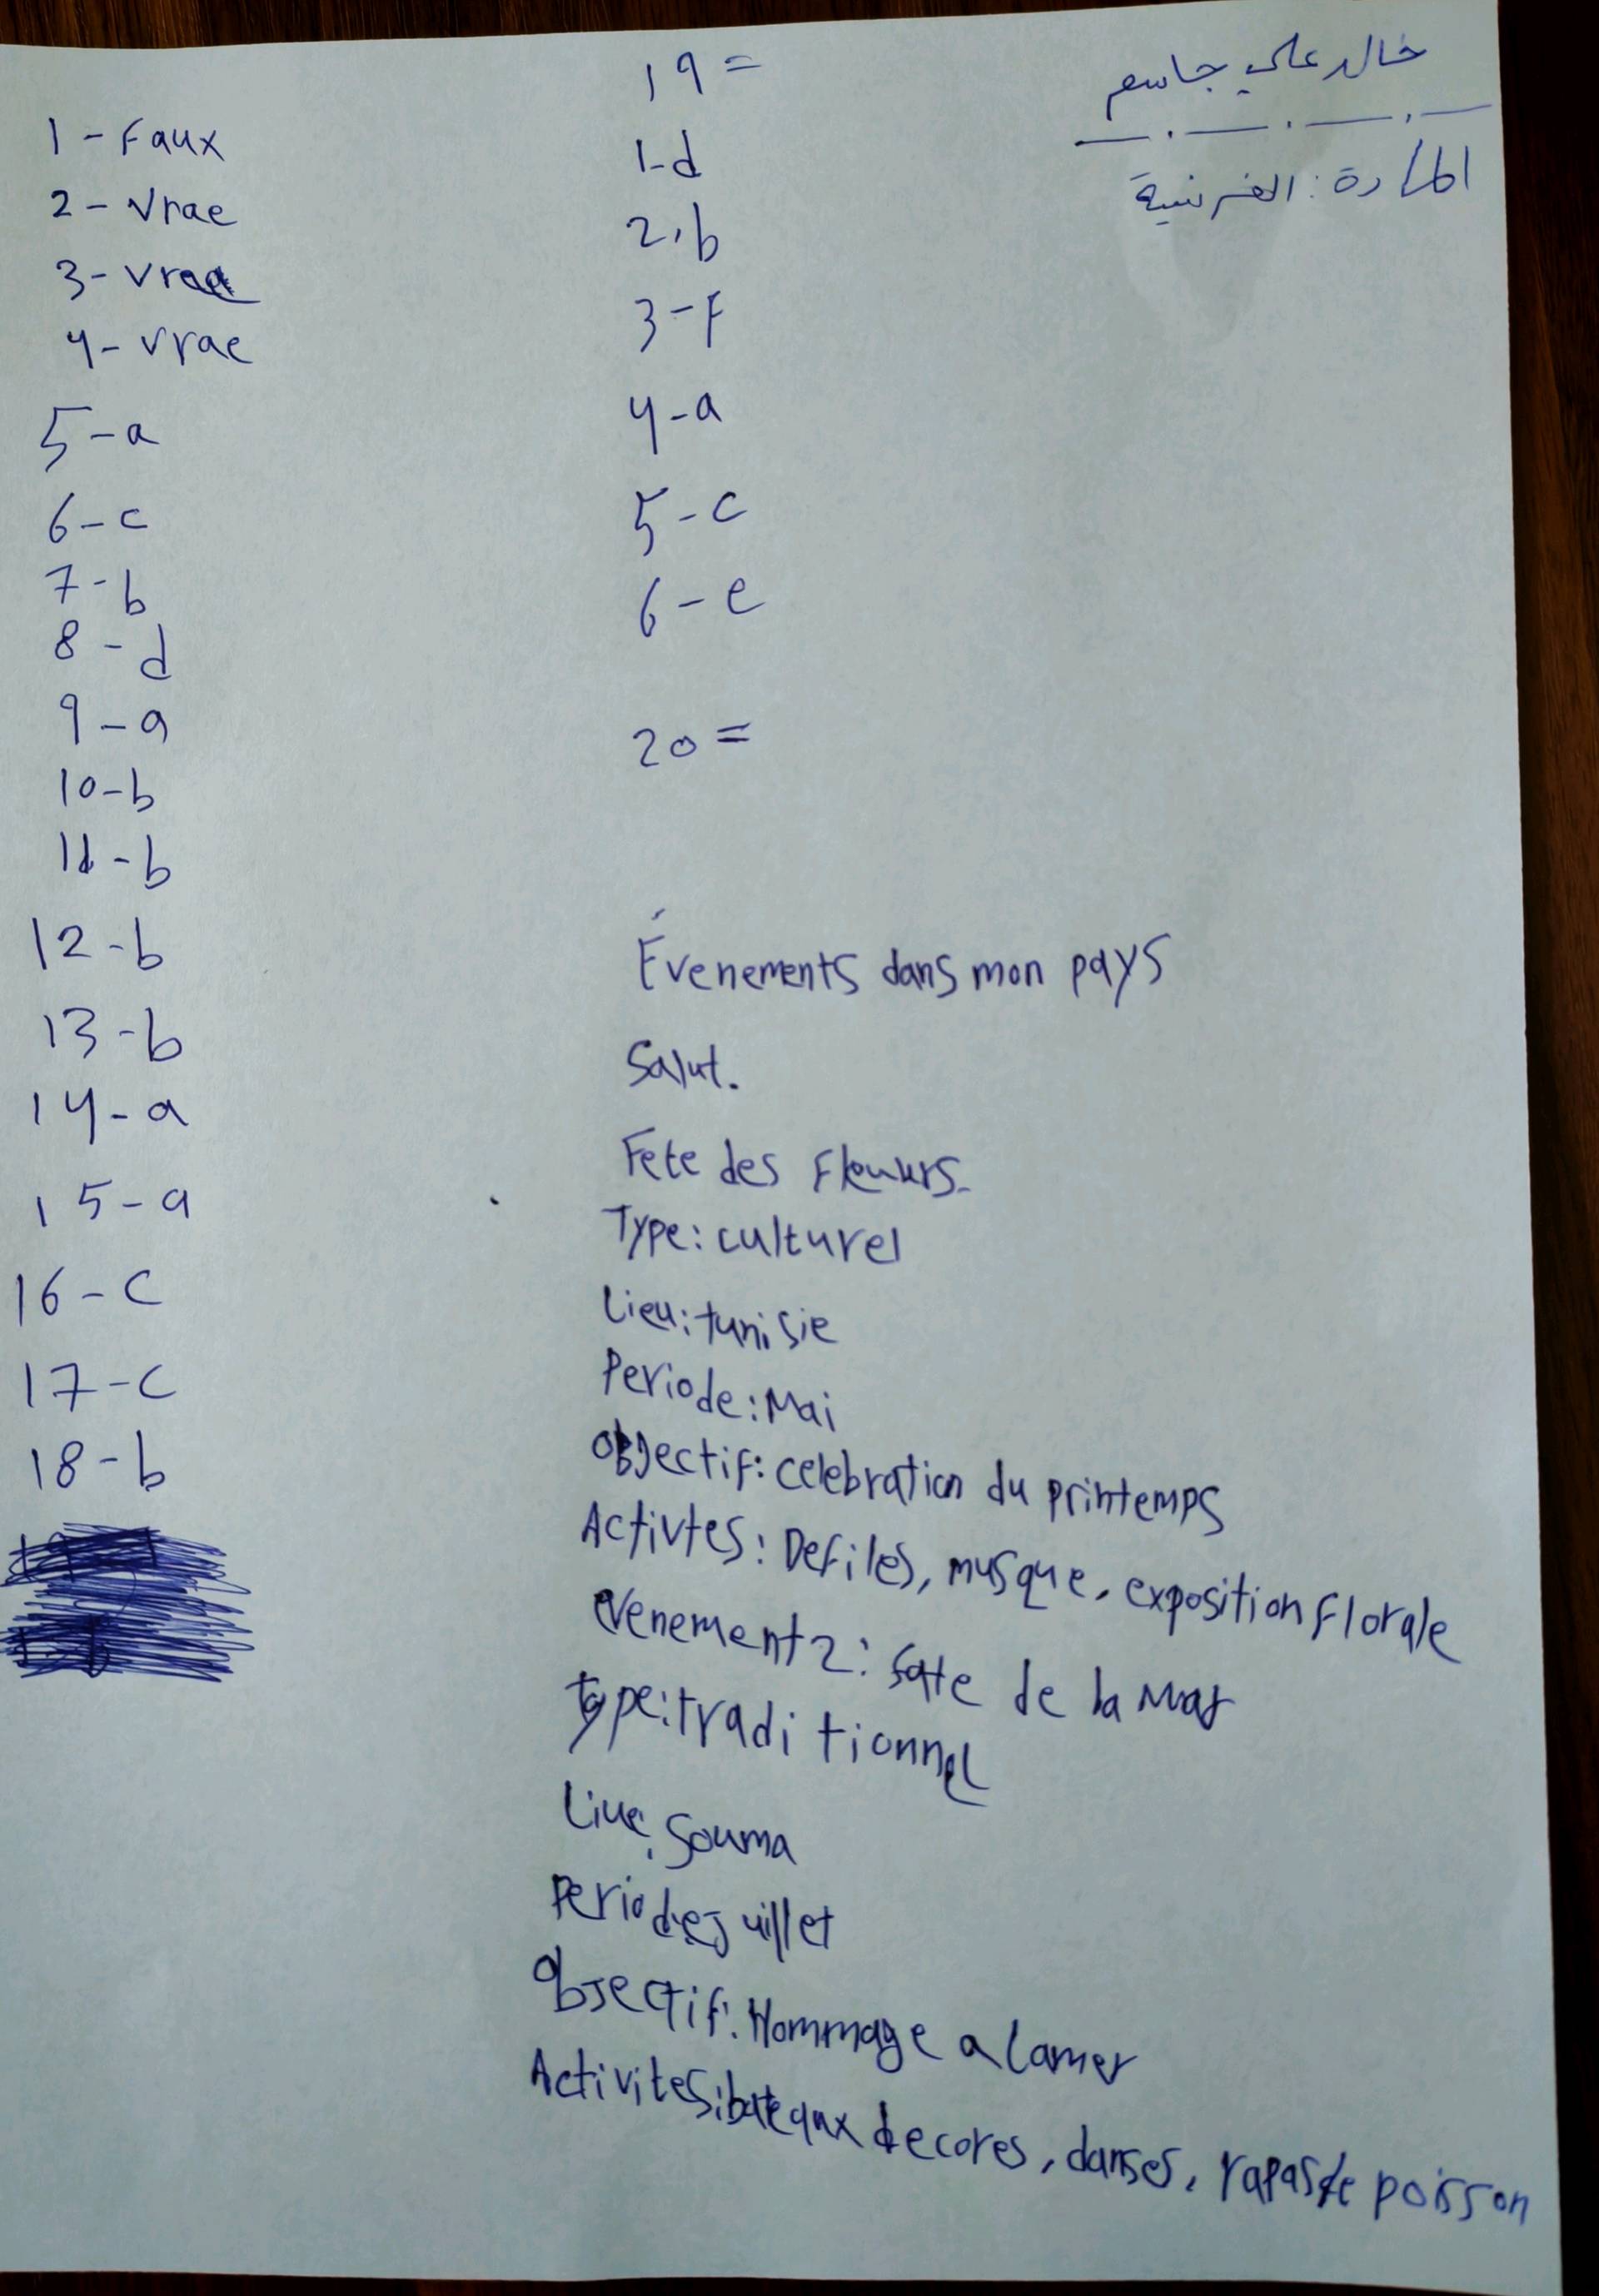 خالد علي جاسم
المادة: الفرنسية
1 - Faux
2 - Vrae
3 - Vrae
4 - Vrae
5 - a
6 - c
7 - b
8 - d
9 - a
10 - b
11 - b
12 - b
13 - b
14 - a
15 - a
16 - C
17 - C
18 - b
19 =
1-d
2,b
3-F
4-a
5-c
6-e
20 =
Évenements dans mon pays
Salut.
Fete des Fleuurs.
Type: culturel
Lieu: tunisie
Periode: Mai
Objectif: celebration du printemps
Activtes: Defiles, musque, exposition florale
evenement 2: fate de la Mar
type: traditionnel
Liue: Souma
Periode: Juillet
Objectif: Hommage a lamer
Activites: bateaux decores, danses, rapas de poisson